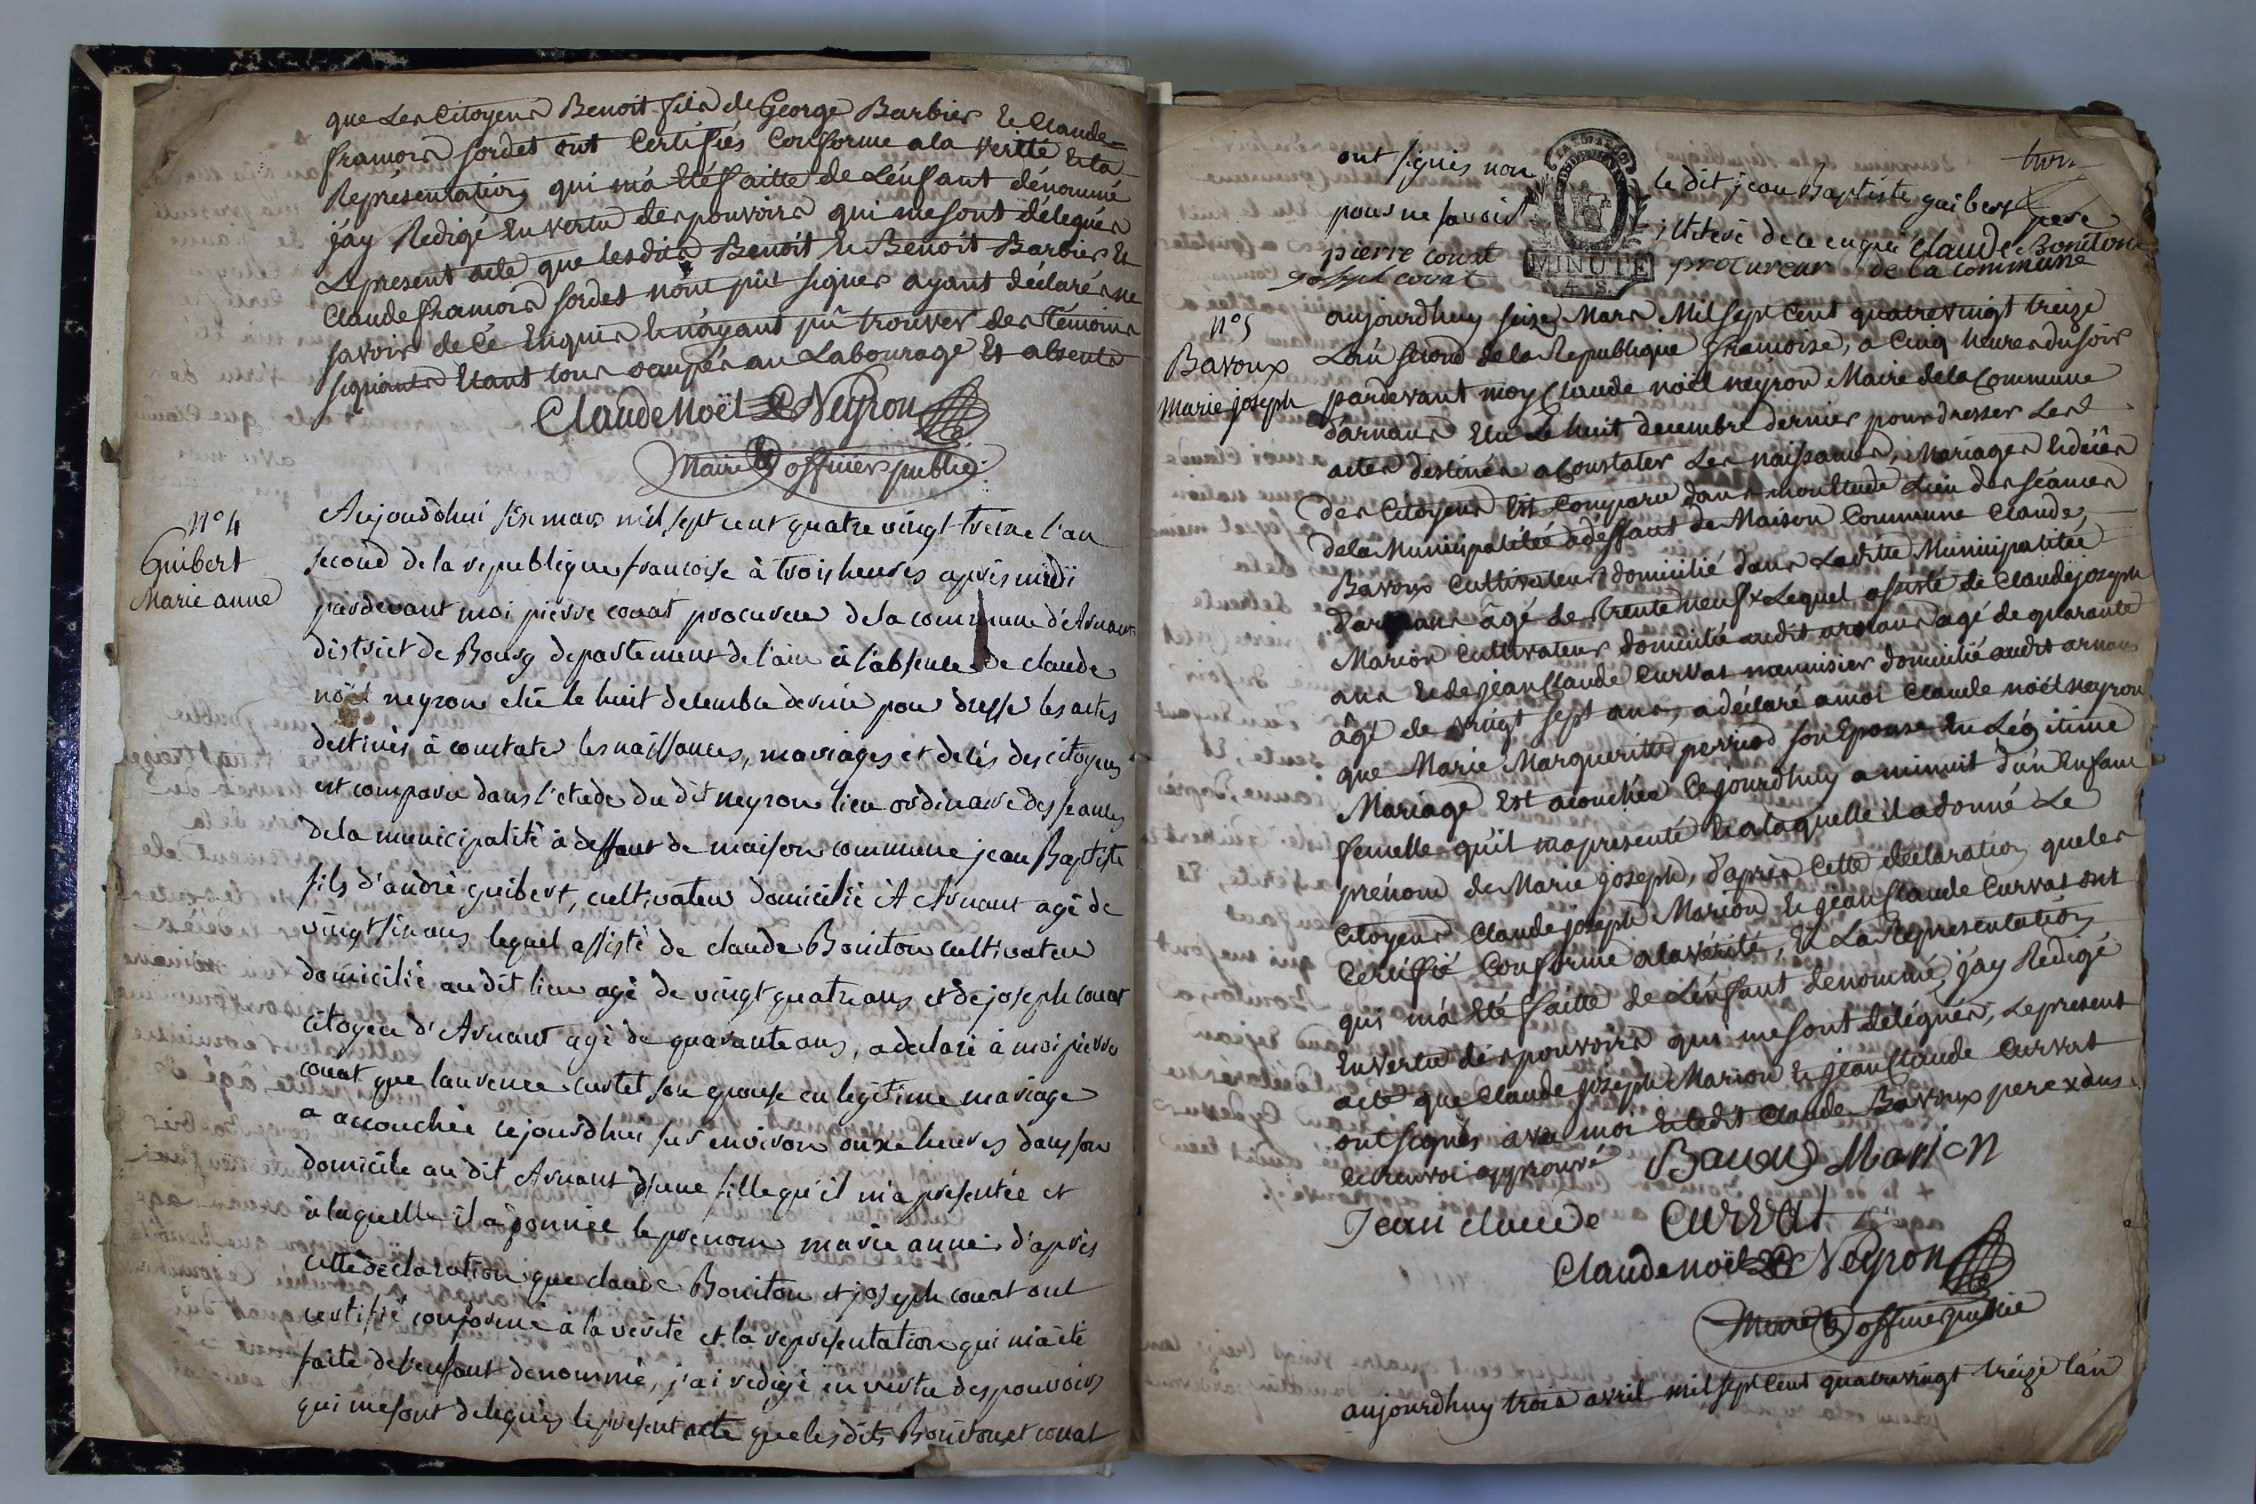 que Les Citoyens Benoit fils de George Barbier Et Claude
francois sordet ont Certifiés Conforme a la verité Et la
Représentation qui m'a Eté faitte de L'enfant dénommé
j'ay Redigé En vertu des pouvoirs qui me sont délegués
Le present acte que lesdits Benoit Et Benoit Barbier Et
Claude francois sordet n'ont pût signer ayant déclarés ne
savoir de Cé Enquis Et n'ayant pû trouver des témoins
signants Etant tous ocupés au Labourage Et absents
Claude Noël Neyron
Maire & officier public
N° 4
Guibert
Marie anne
Aujourdhui six mars mil sept cent quatre vingt treize l'an
second de la republique francoise à trois heures après midi
pardevant moi pierre couat procureur de la commune d'Arnans
district de Bourg departement de l'ain à l'absence de claude
noël neyron elié le huit decembre dernié pour dresse les actes
destinés à constate les naissances, mariages et décès des citoyens
est comparu dans l'etude du dit neyron lieu ordinaire des seances
de la municipalité à deffaut de maison commune jean Baptiste
fils d'andré guibert, cultivateur domicilié à Arnans agé de
vingt six ans lequel assisté de claude Boniton cultivateur
domicilié au dit lieu agé de vingt quatre ans et de joseph couat
citoyen d'Arnans agé de quarante ans, a declaré à moi pierre
couat que laurence curtet son epouse en legitime mariage
a accouchée cejourdhui sur environ onze heures dans son
domicile au dit Arnans d'une fille qu'il m'a presentée et
à laquelle il a donnée le prénom marie anne d'après
cette déclaration que claude Boniton et joseph couat ont
certifié conforme à la verité et la representation qui m'a été
faite de l'enfant denommé, j'ai redigé en vertu des pouvoirs
qui me sont delegués le present acte que les dits Boniton et couat
trois
ont signés non le dit jean Baptiste guibert pere
pour ne savoir ; Etteré de ce enquis Claude Boniton
pierre couat procureur de la commune
joseph couat
MINUTE
N° 5
Bavoux
Marie joseph
aujourdhuy seize Mars Mil sept Cent quatrevingt treize
L'an second de la Republique francoise, a Cinq heures du soir
pardevant moy Claude noël neyron Maire de la Commune
d'arnans Elu Le huit decembre dernier pour dresser Les
actes destinés a Constater Les naissances, Mariages Et décès
des Citoyens Est Comparu dans mon Etude Lieu des séances
de la Municipalitée a deffaut de Maison Commune Claude
Bavoux Cultivateur domicilié dans Laditte Municipalitée
d'arnans âgé de trente neuf x Lequel assisté de Claude joseph
Marion Cultivateur domicilié audit arnans agé de quarante
ans Et de jean Claude Curvat menuisier domicilié audit arnans
âgé de vingt sept ans, a déclaré a moi Claude noël neyron
que Marie Margueritte perriod son Epouse En Légitime
Mariage Est acouchée Cejourdhuy a minuit d'un Enfant
femelle qu'il ma presenté Et a laquelle il a donné Le
prénom de Marie joseph, d'après Cette déclaration que les
Citoyens Claude joseph Marion Et jean Claude Curvat ont
Certifié Conforme a la vérité, Et La Representation
qui m'a Eté faitte de L'enfant denommé, j'ay Redigé
En vertu des pouvoirs qui me sont délégués, Le present
acte que Claude joseph Marion Et jean Claude Curvat
ont signés avec moi Et ledit Claude Bavoux pere x ans
Le renvoi approuvé Bavoux Marion
Jean claude Curvat
Claude noël Neyron
Maire & officier public
aujourdhuy trois avril mil sept Cent quatrevingt treize L'an